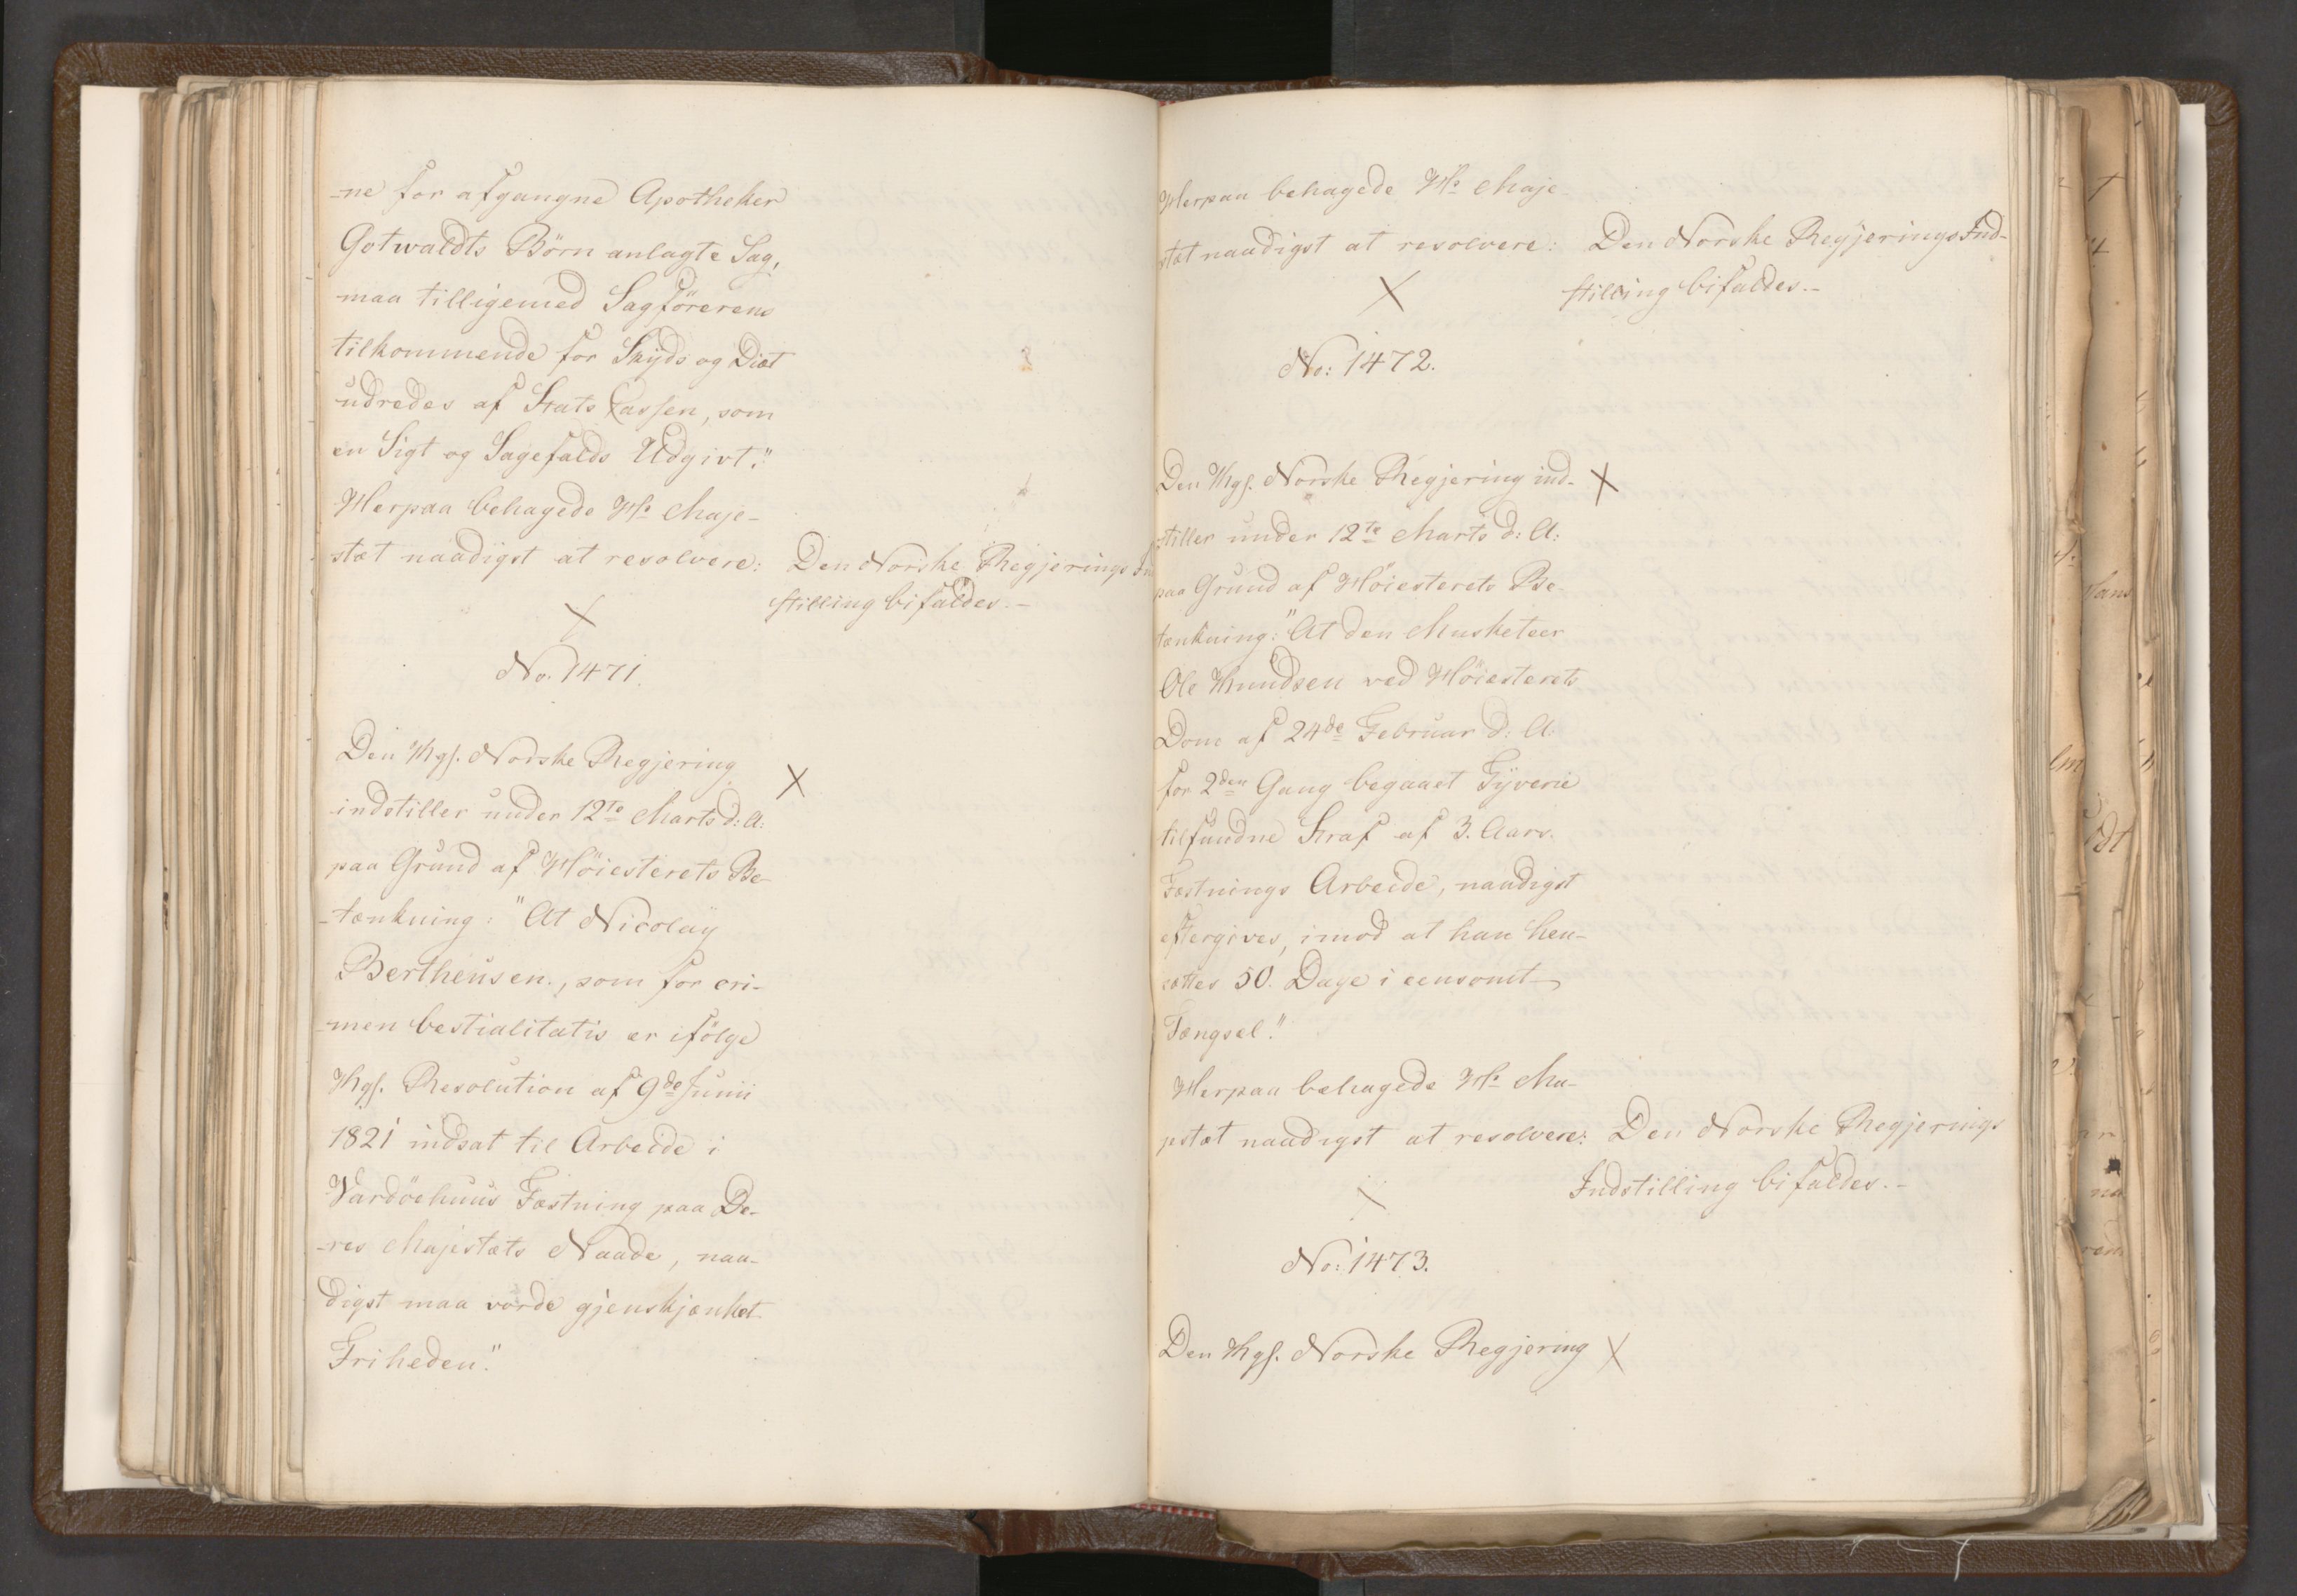 -ne for afgangne Apotheker
Gotwaldts Börn anlagte Sag,
maa tilligemed Sagförerens
tilkommende for Skyds og Diæt
udredes af Stats Cassen, som
en Sigt og Sagefalds Udgivt."
Herpaa behagede Hs Maje-
stæt naadigst at resolvere:
Den Norske Regjerings In
stilling bifaldes.-
No. 1471.
Den Kgs. Norske Regjering
indstiller under 12te Marts d: A:
paa Grund af Höiesterets Be-
-tænkning: "At Nicolay
Bertheusen., som for cri-
-men bestialitatis er ifölge
Kgs. Resolution af 9de Junii
1821 indsat til Arbeide i
Vardöehuus Fæstning paa De-
-res Majestæts Naade, naa-
digst maa vorde gjenskjænket
Friheden."
Herpaa behagede Hs Maje-
stæt naadigst at resolvere:
Den Norske Regjerings Ind-
stilling bifaldes.-
No: 1472.
Den Kgs. Norske Regjering ind-
stiller under 12te Marts d: A:
paa Grund af Höiesterets Be-
tænkning: "At den Musketeer
Ole Knudsen ved Höiesterets
Dom af 24de Februar d: A:
for 2den Gang begaaet Tyverie
tilfundne Straf af 3. Aars.
Fæstnings Arbeide, naadigst
eftergives, imod at han hen-
sættes 50. Dage i eensomt
Fængsel."
Herpaa behagede Hs Ma-
jestæt naadigst at resolvere:
Den Norske Regjerings
Indstilling bifaldes.-
No: 1473.
Den Kgs. Norske Regjering